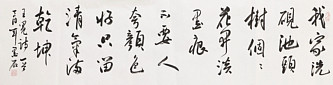 我家洗
砚池头
树個個
花开淡
墨痕
不要人
夸颜色
好只留
清氣满
乾坤
王冕诗一首